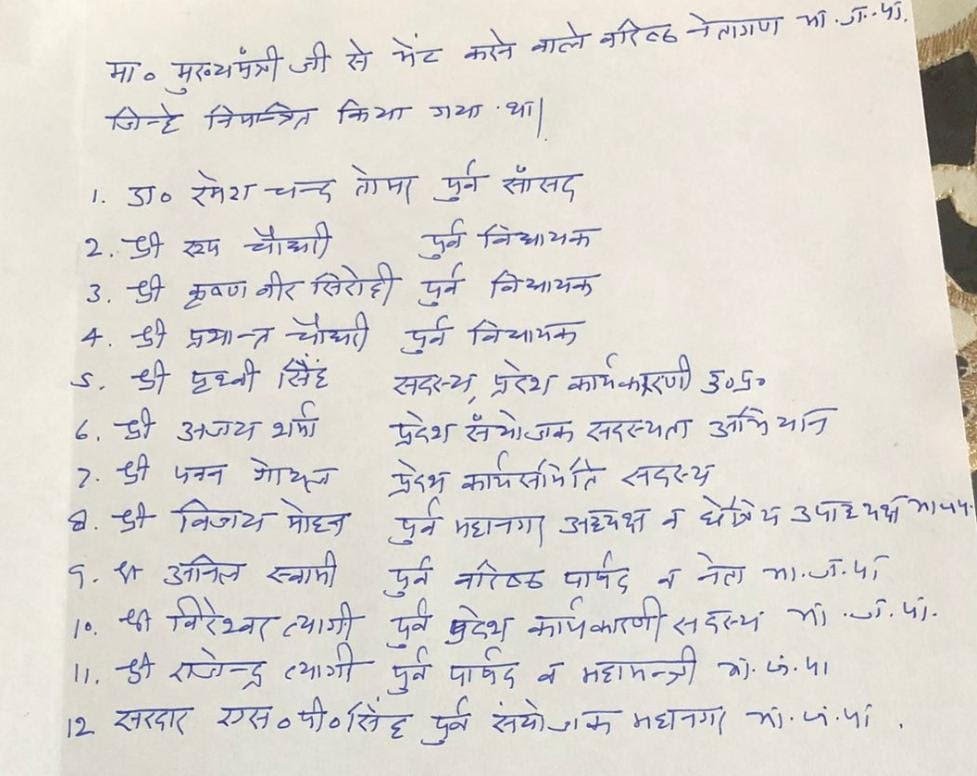 मा० मुख्यमंत्री जी से भेंट करने वाले वरिष्ठ नेतागण भा.ज.पा.
जिन्हे निमन्त्रित किया गया था|
1. डा० रमेश चन्द तोमर पुर्व साँसद
2. श्री रूप चौधरी पुर्व विधायक
3. श्री कृष्ण वीर सिरोही पुर्व विधायक
4. श्री प्रशान्त चौधरी पुर्व विधायक
5. श्री पृथ्वी सिंह सदस्य, प्रदेश कार्यकारणी उ०प्र०
6. श्री अजय शर्मा प्रदेश सँयोजक सदस्यता अभियान
7. श्री पवन गोयल प्रदेश कार्यसमिति सदस्य
8. श्री विजय मोहन पुर्व महानगर अध्यक्ष व क्षेत्रिय उपाध्यक्ष भाजपा.
9. श्री अनिल स्वामी पुर्व वरिष्ठ पार्षद व नेता भा.ज.पा
10. श्री विरेश्वर त्यागी पुर्व प्रदेश कार्यकारणी सदस्य भा.ज.पा.
11. श्री राजेन्द्र त्यागी पुर्व पार्षद व महामन्त्री भा.ज.पा
12 सरदार एस०पी०सिंह पुर्व संयोजक महानगर भा.ज.पा.